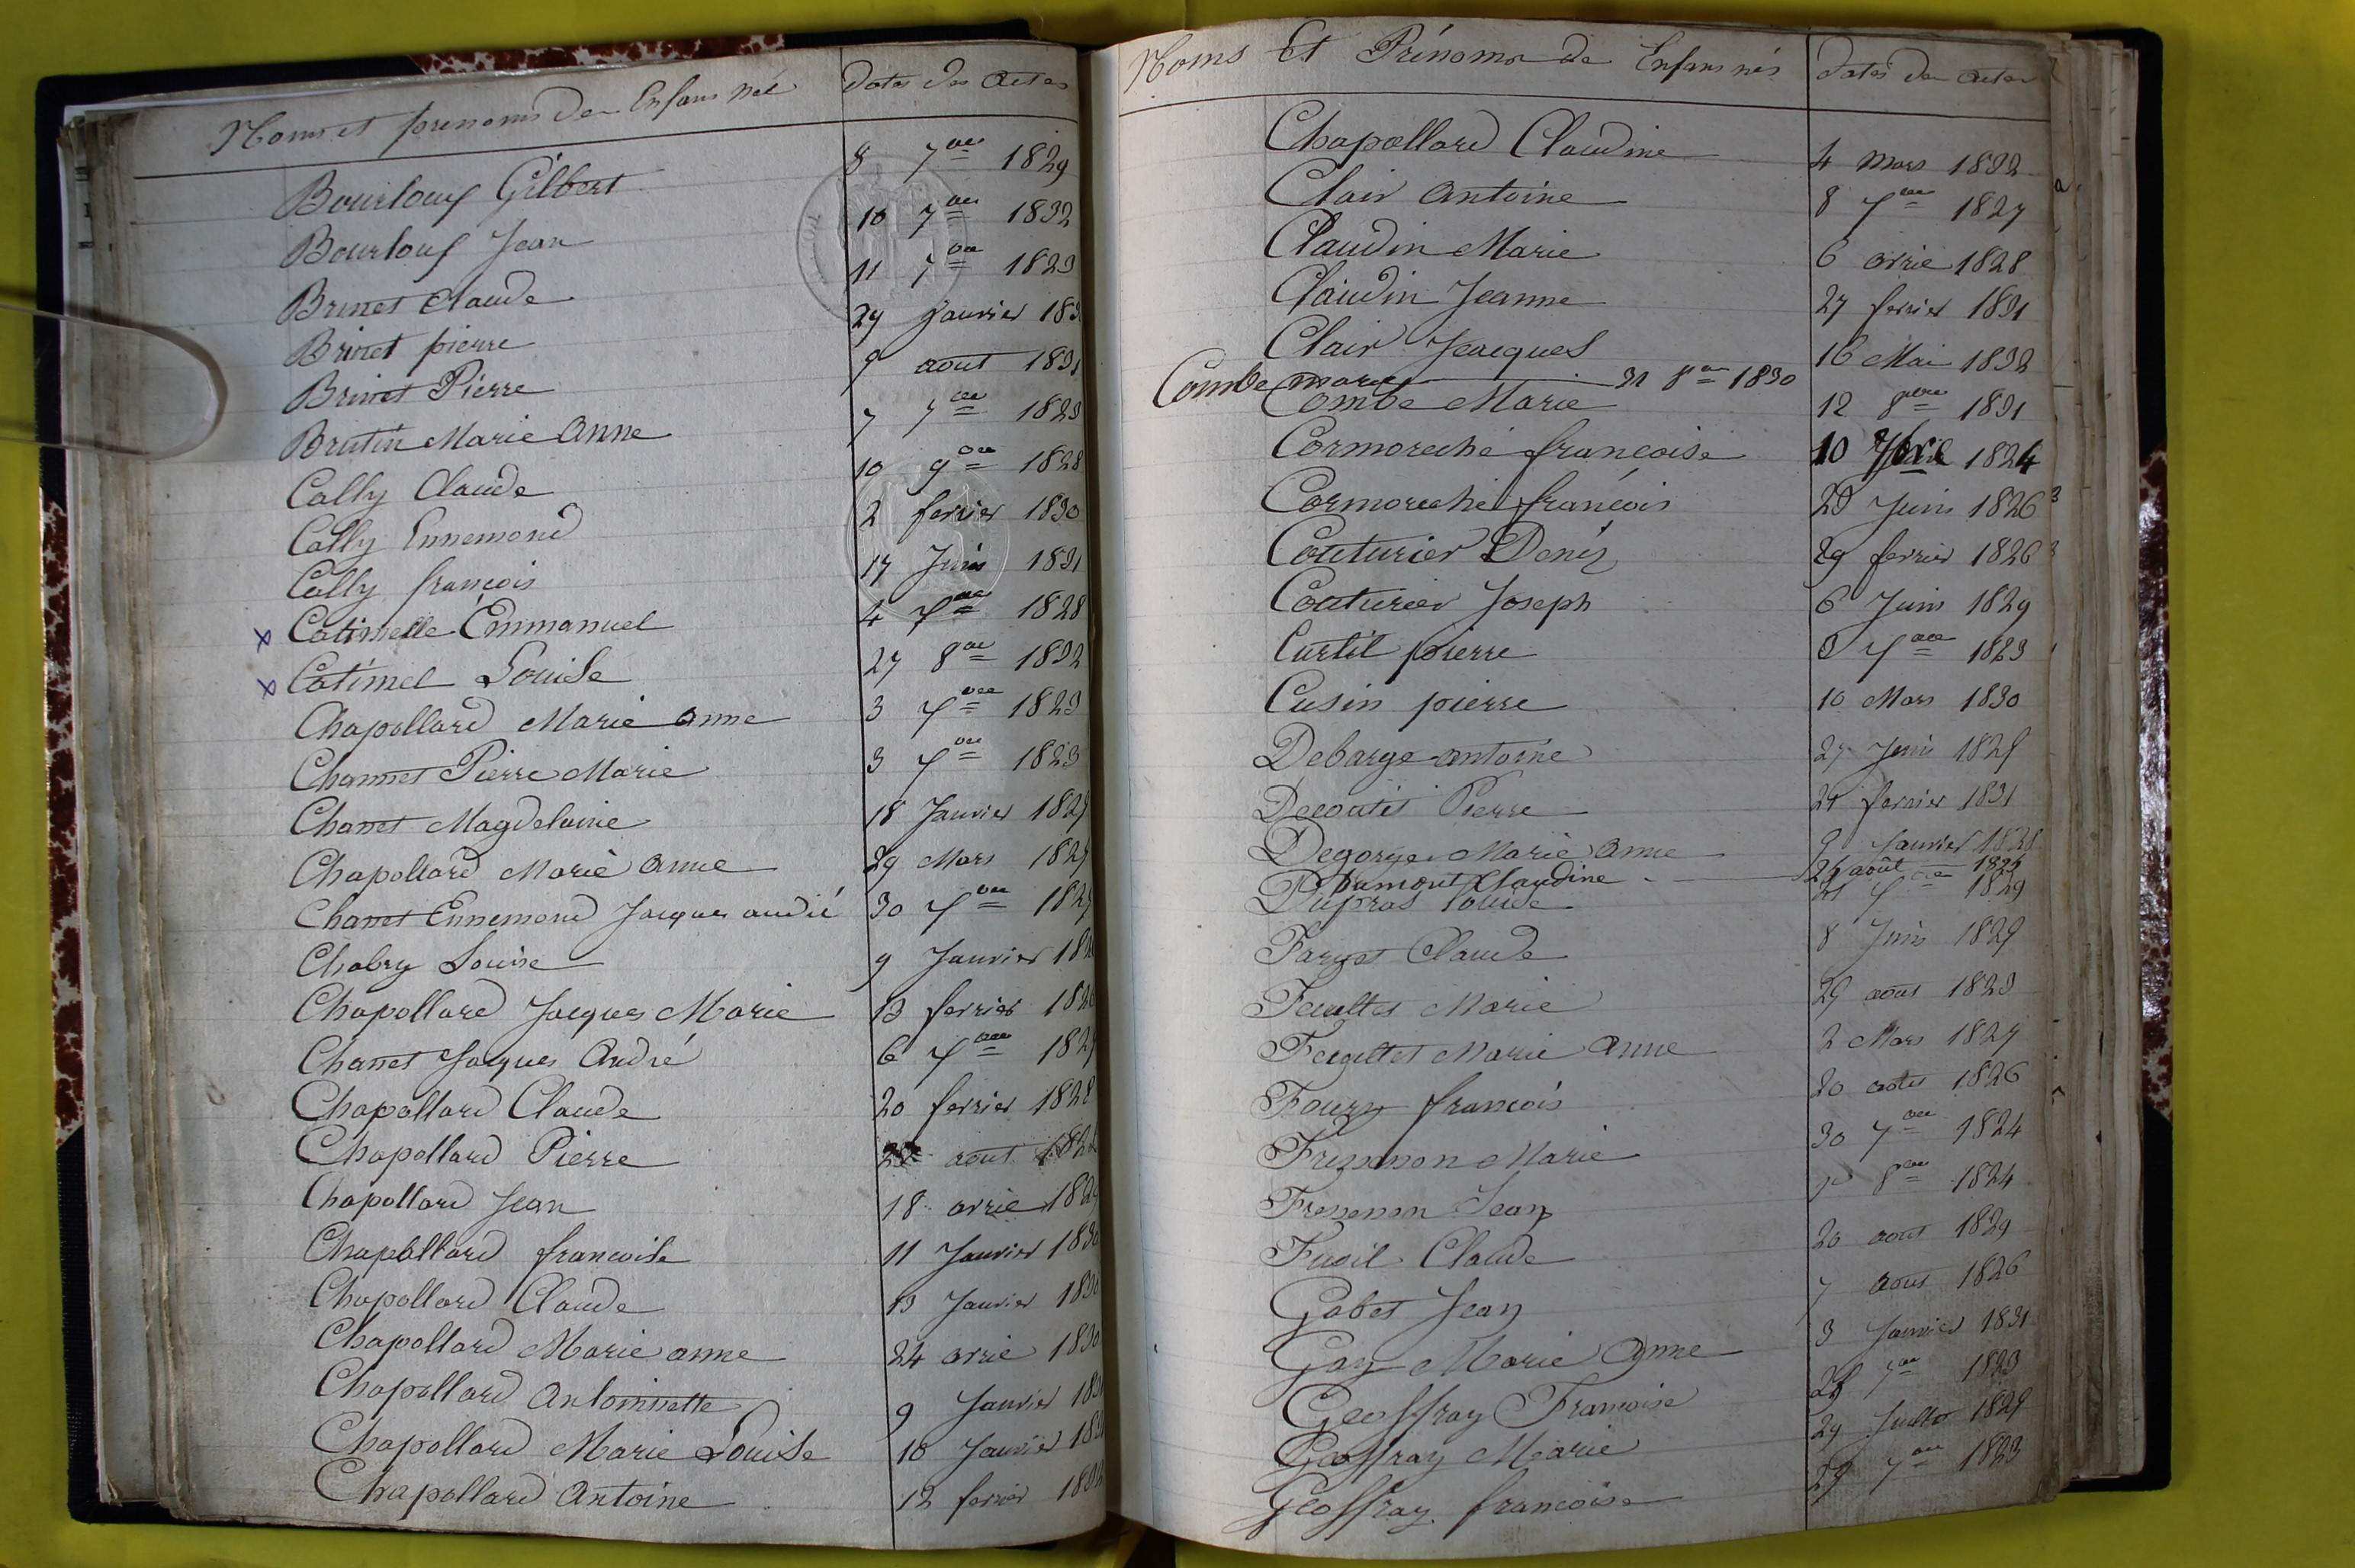 Noms et prenoms des Enfans nés dates des Actes
Bourlouf Gilbert 8 7bre 1829
Bourlouf Jean 10 7bre 1832
Brinet Claude 11 7bre 1823
Brinet pierre 27 Janvier 183
Brinet Pierre 9 aout 1831
Brutin Marie Anne 7 7bre 1823
Cally Claude 10 9bre 1828
Cally Ennemond 2 fevrier 1830
Cally françois 17 Juin 1831
x Catimelle Emmanuel 4 7bre 1828
x Catimel Louise 27 8bre 1832
Chapollard Marie anne 3 7bre 1823
Channet Pierre Marie 3 7bre 1823
Chanet Magdelaine 18 Janvier 182
Chapollard Marie Anne 29 Mars 182
Chanet Ennemond Jacques andré 30 7bre 182
Chabry Louise 9 Janvier 18
Chapollard Jacques Marie 13 fevrier 182
Chanet Jacques André 6 7bre 182
Chapollard Claude 20 fevrier 1828
Chapollard Pierre aout 182
Chapollard Jean 18 avril 182
Chapollard francoise 11 Janvier 1830
Chapollard Claude 13 Janvier 1830
Chapollard Marie anne 24 avril 1830
Chapollard Antoinette 9 Janvier 183
Chapollard Marie Louise 10 Janvier 183
Chapollard Antoine 12 fevrier 183
Noms Et Prénoms de Enfans nés dates des actes
Chapollard Claudine 4 Mars 1832
Clair Antoine 8 7bre 1827
Claudin Marie 6 avril 1828
Claudin Jeanne 27 fevrier 1831
Clair Jacques 16 Mai 1832
Combe marie 31 8bre 1830
Combe Marie 12 8bre 1831
Cormoreche françoise 10 1824
Cormoreche françois 23 Juin 1826
Couturier Denis 29 fevrier 1826
Couturier Joseph 6 Juin 1829
Curtil pierre 8 7bre 1823
Cusin pierre 10 Mars 1830
Debarge antoine 27 Juin 182
Decoutis Pierre 21 fevrier 1831
Degorge Marie Anne 9 Janvier 1828
Dumont Claudine 26 août 182
Dupras Louise 21 7bre 1829
Farget Claude 8 Juin 1829
Feuiltet Marie 29 aout 1823
Feugiltet Marie Anne 2 Mars 1827
Foury françois 20 1826
Fremmon Marie 30 7bre 1824
Fremmon Jean 8bre 1824
Fusil Claude 20 aout 1829
Gobet Jean 7 aout 1826
Gay Marie Anne 3 Janvier 1831
Geoffray Francoise 28 7bre 1823
Geoffray Marie 29 Juillet 182
Geoffray francoise 29 7bre 1823